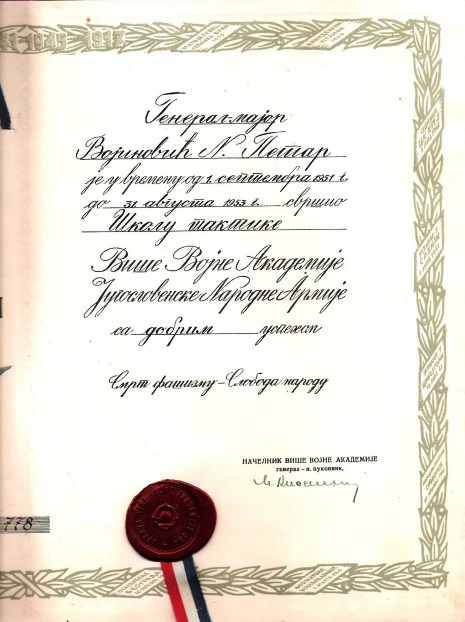 1941-1945 1918
Генерал-мајор
Војиновић Н. Петар
је у времену од 1. септембра 1951 г.
до 31. августа 1953 г. свршио
Школу тактике
Више Војне Академије
Југословенске Народне Армије
са добрим успехом
Смрт фашизму - Слобода народу
НАЧЕЛНИК ВИШЕ ВОЈНЕ АКАДЕМИЈЕ
генерал - п. пуковник,
778